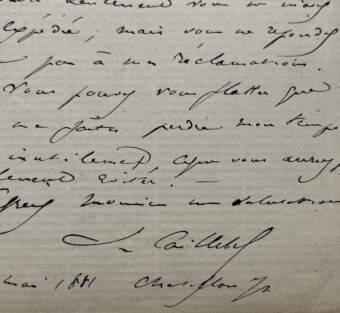 seulement vous ne m'avez
expédié, mais vous ne répondez
pas à ma réclamation.
Vous pouvez vous flatter que
me faites perdre mon temps
inutilement, ce que vous auriez
lement évité. —
Agréez Monsieur mes salutations
L. Cailletet
mai 1881 Chatillon s/s